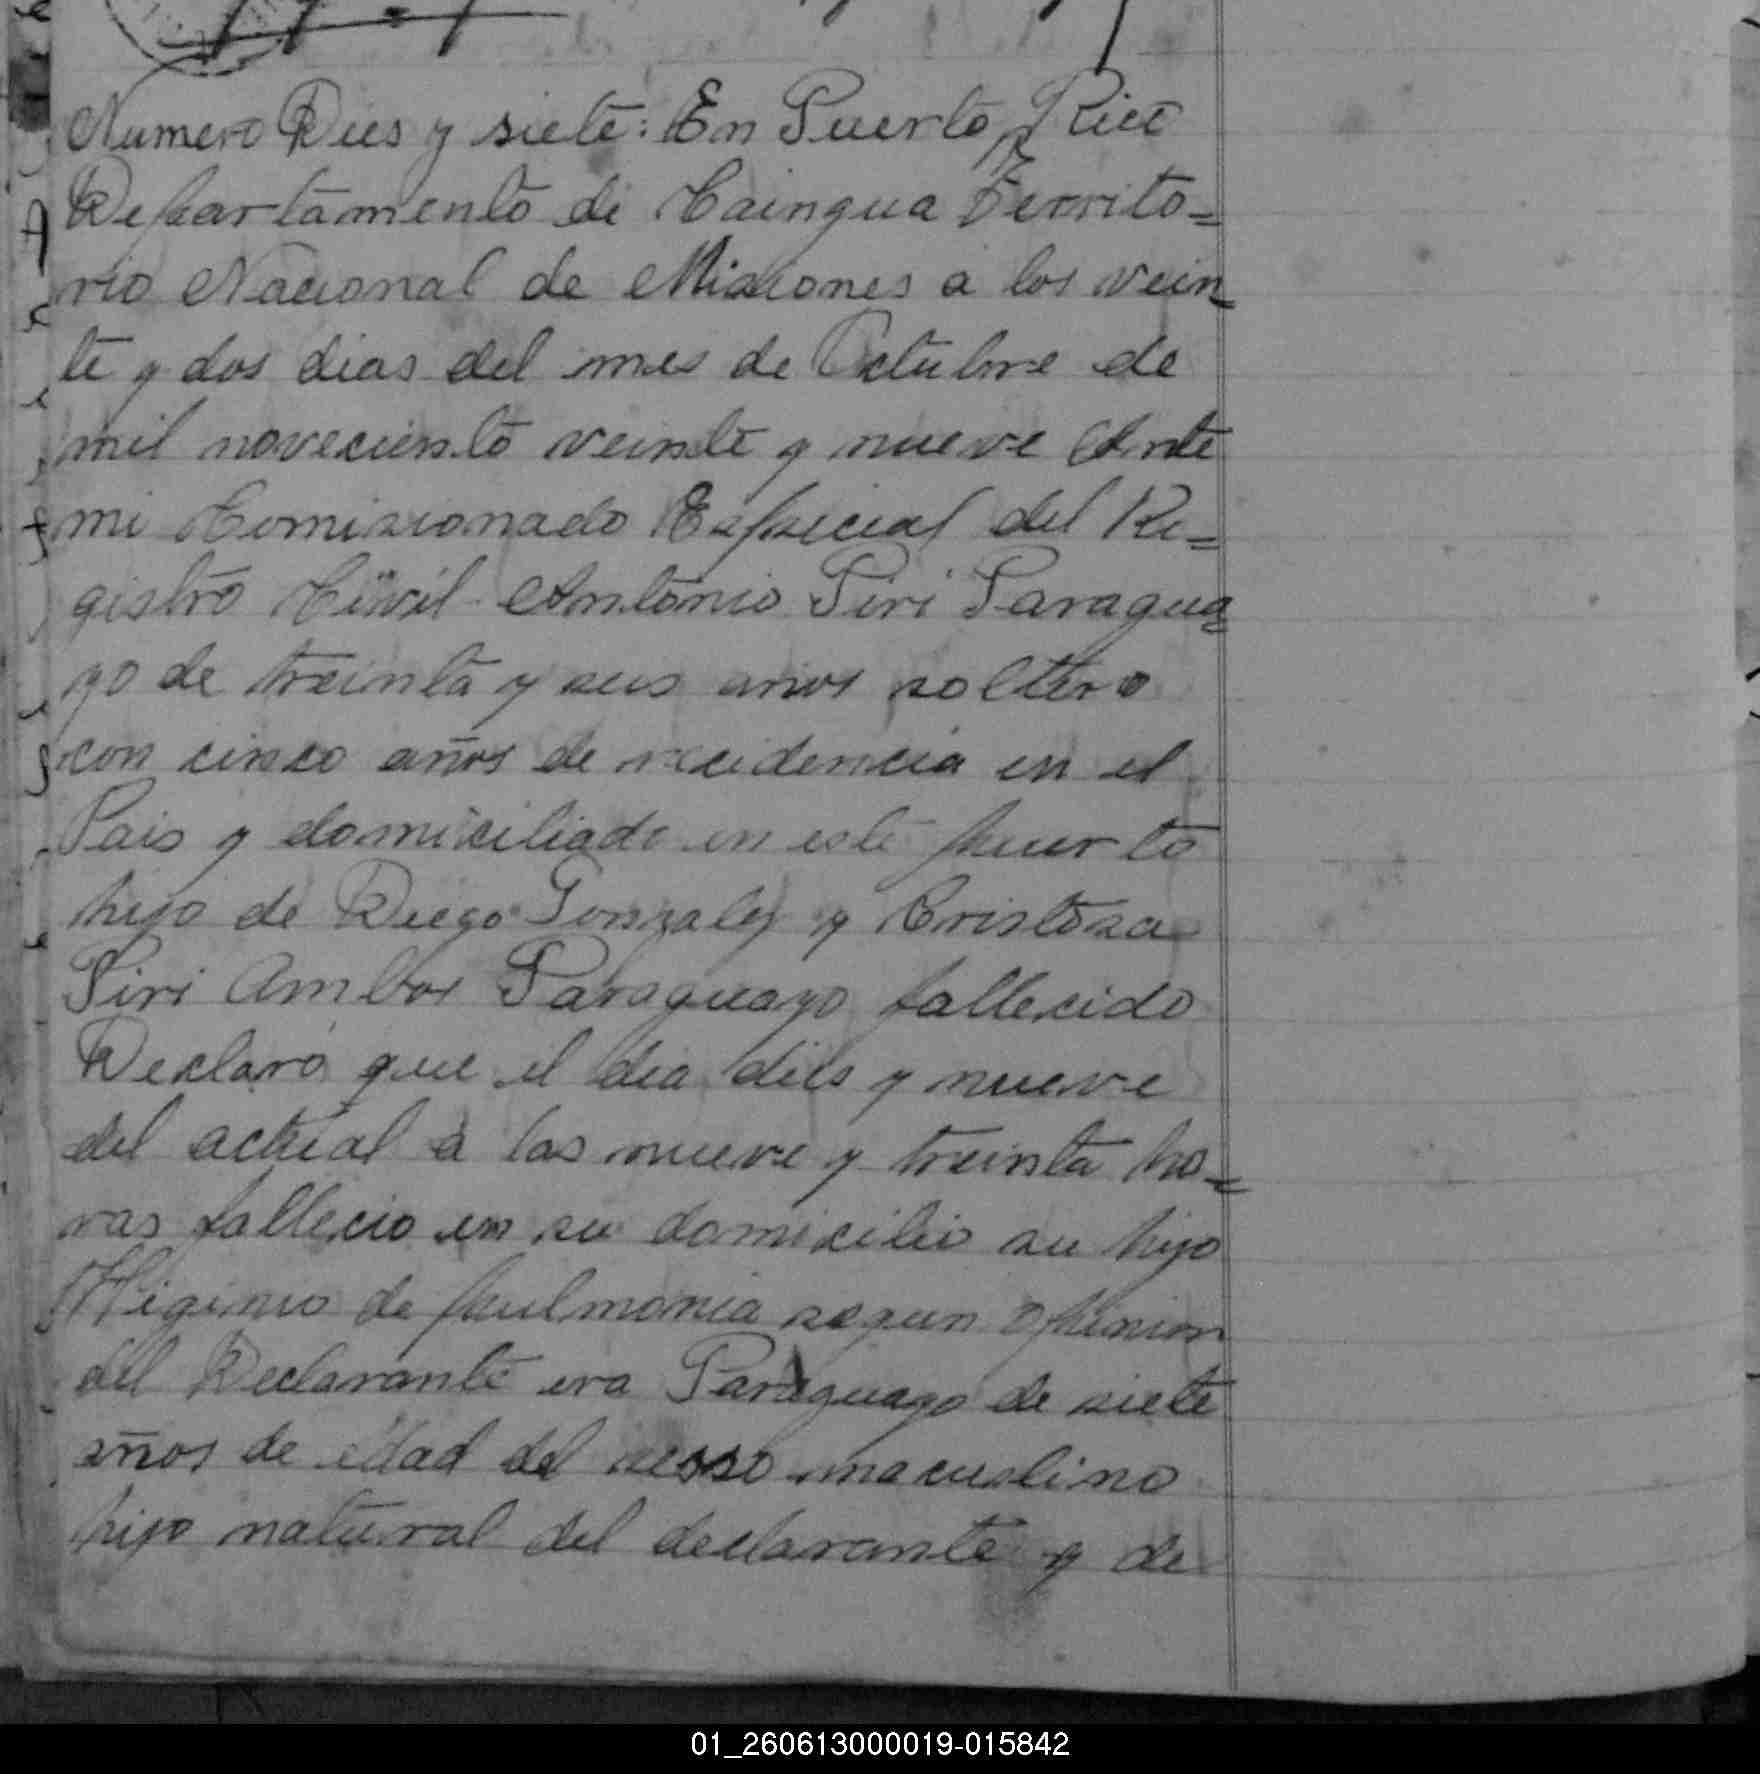 Numero Dies y siete: En Puerto Rico
Departamento de Caingua Territo=
rio Nacional de Misiones a los vein
te y dos dias del mes de Octubre de
mil noveciento veinte y nueve Ante
mi Comisionado Especial del Re=
gistro Civil Antonio Piri Paragua
yo de treinta y seis años soltero
con cinco años de recidencia en el
Pais y domiciliado en este puerto
hijo de Diego Gonzalez y
Piri Ambos Paraguayo fallecido
Declaro que el dia dies y nueve
del actual a las nueve y treinta ho=
ras fallecio en su domicilio su hijo
Higinio de pulmonia segun opinion
del Declarante era Paraguayo de siete
años de edad del sesso macuslino
hijo natural del declarante y de
01_260613000019-015842